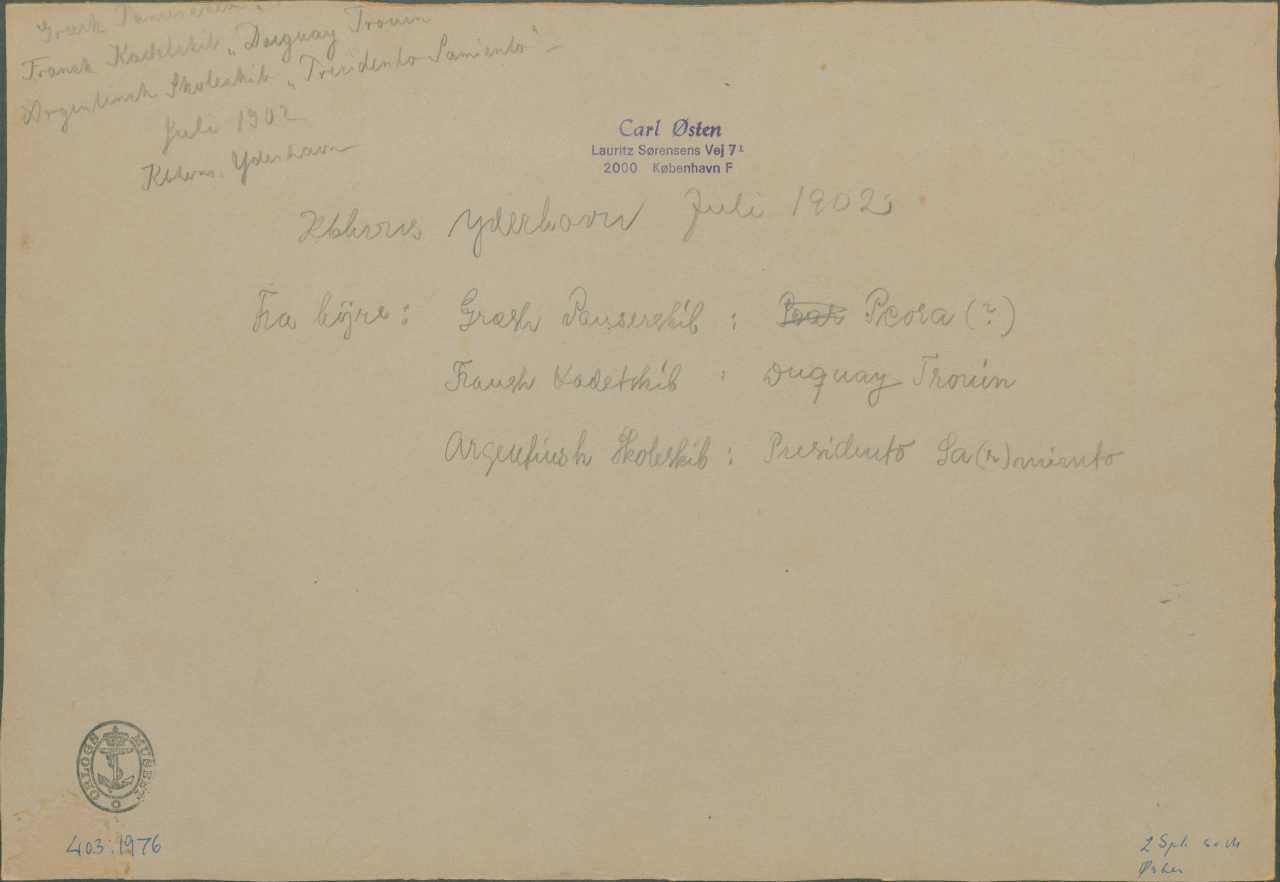 Græsk Panserskib „
Fransk Kadetskib „Duguay Trouin
Argentinsk Skoleskib „Presidento Samiento"
Juli 1902
Kbhvns. Yderhavn
Carl Østen
Lauritz Sørensens Vej 7¹
2000 København F
Kbhvns Yderhavn Juli 1902;
Fra højre: Græsk Panserskib : Psora (?)
Fransk Kadetskib : Duquay Trouin
Argentinsk Skoleskib : Presidento Sa(r)miento
ORLOGS MUSEET
403:1976
2 Spl.
Østen